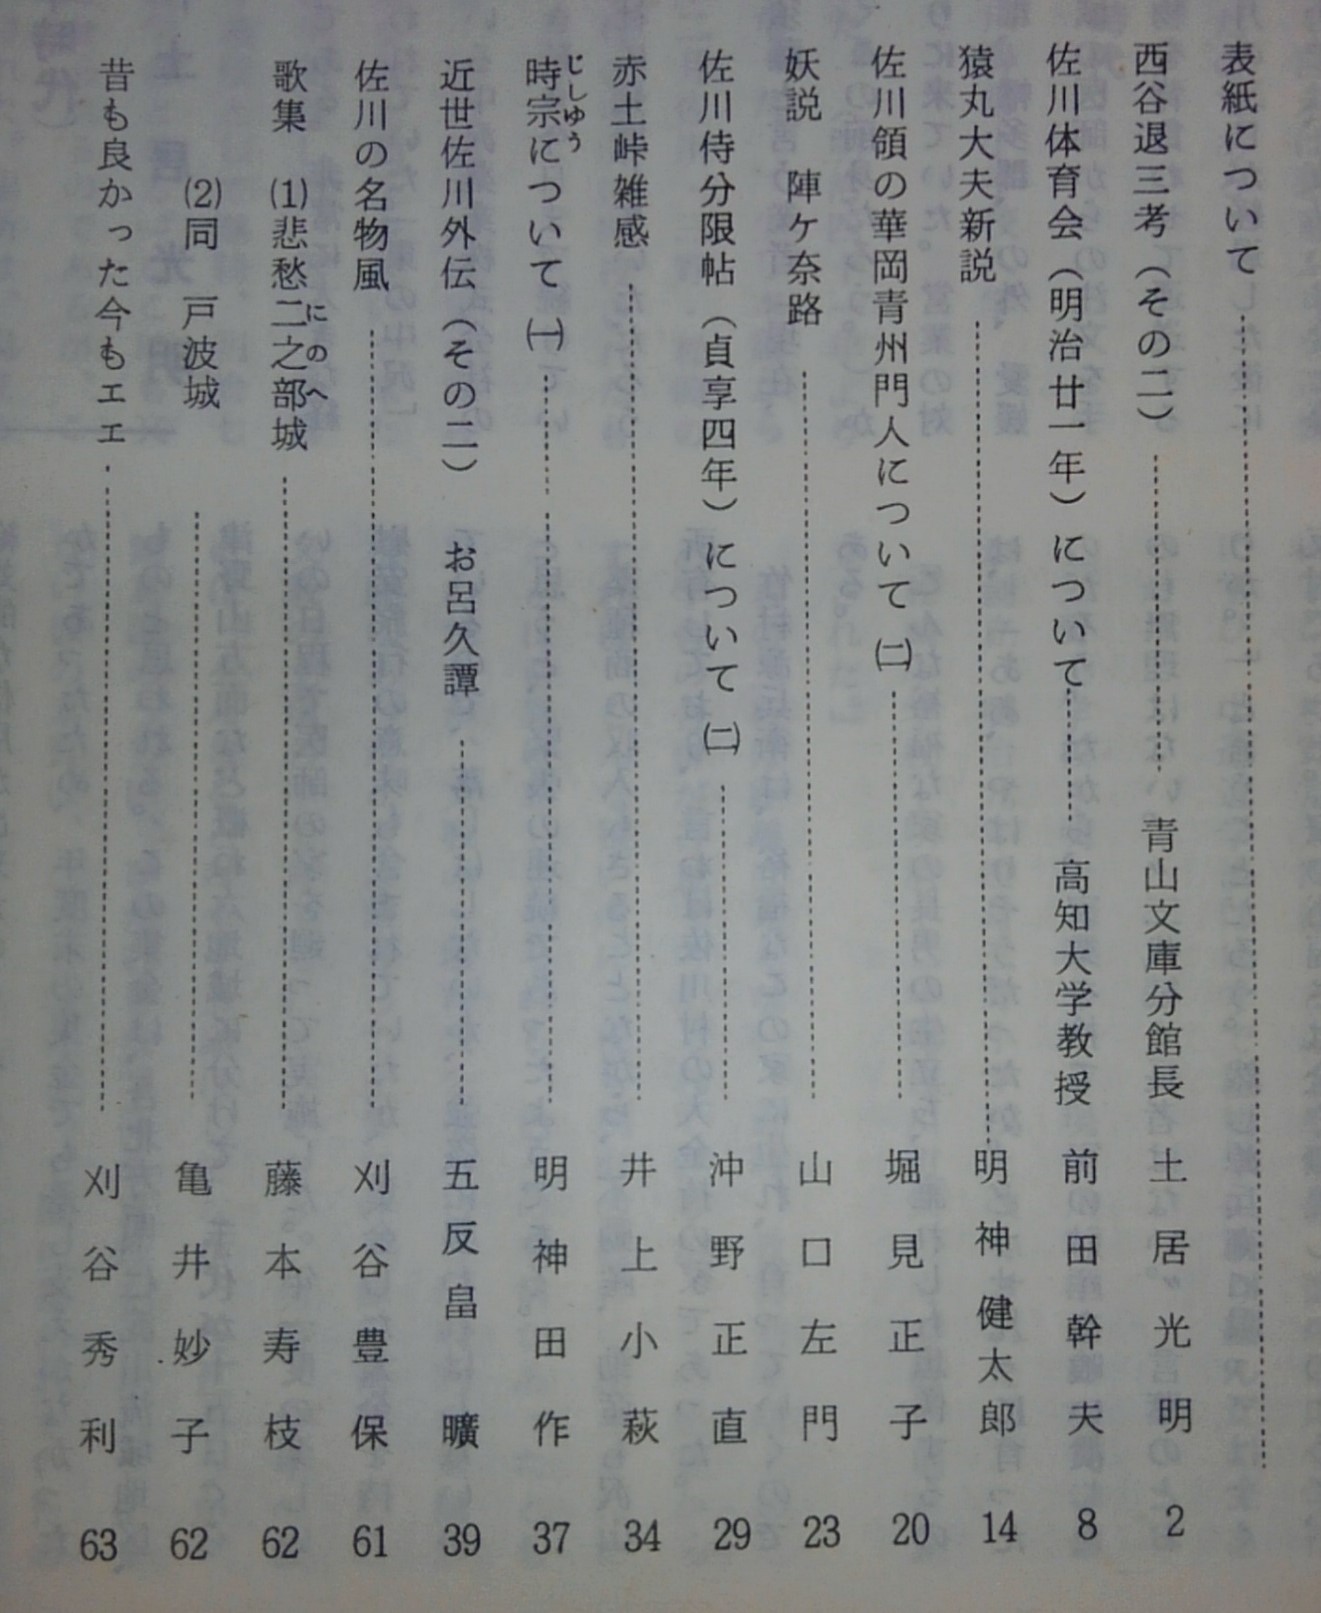 表紙について
西谷退三考（その二） 青山文庫分館長 土居光明 2
佐川体育会（明治廿一年）について 高知大学教授 前田幹夫 8
猿丸大夫新説 明神健太郎 14
佐川領の華岡青州門人について㈡ 堀見正子 20
妖説 陣ケ奈路 山口左門 23
佐川侍分限帖（貞享四年）について㈡ 沖野正直 29
赤土峠雑感 井上小萩 34
時宗じしゅうについて㈠ 明神田作 37
近世佐川外伝（その二） お呂久譚 五反畠曠 39
佐川の名物風 刈谷豊保 61
歌集 ⑴悲愁二之部にのへ城 藤本寿枝 62
⑵同 戸波城 亀井妙子 62
昔も良かった今もエエ 刈谷秀利 63